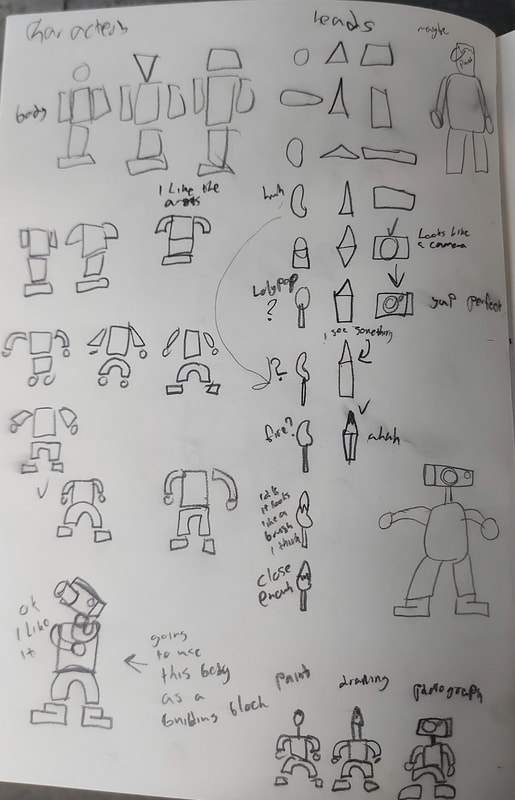 Characters
heads
maybe
body
I like the
arms
hmh
Looks like
a camera
Lolypop
?
yup perfect
I see something
!?
fire?
ahah
idk
it looks
like a
brush
I think
close
enouh
ok
I like
it
going
to use
this body
as a
building block
paint
drawing
photograph